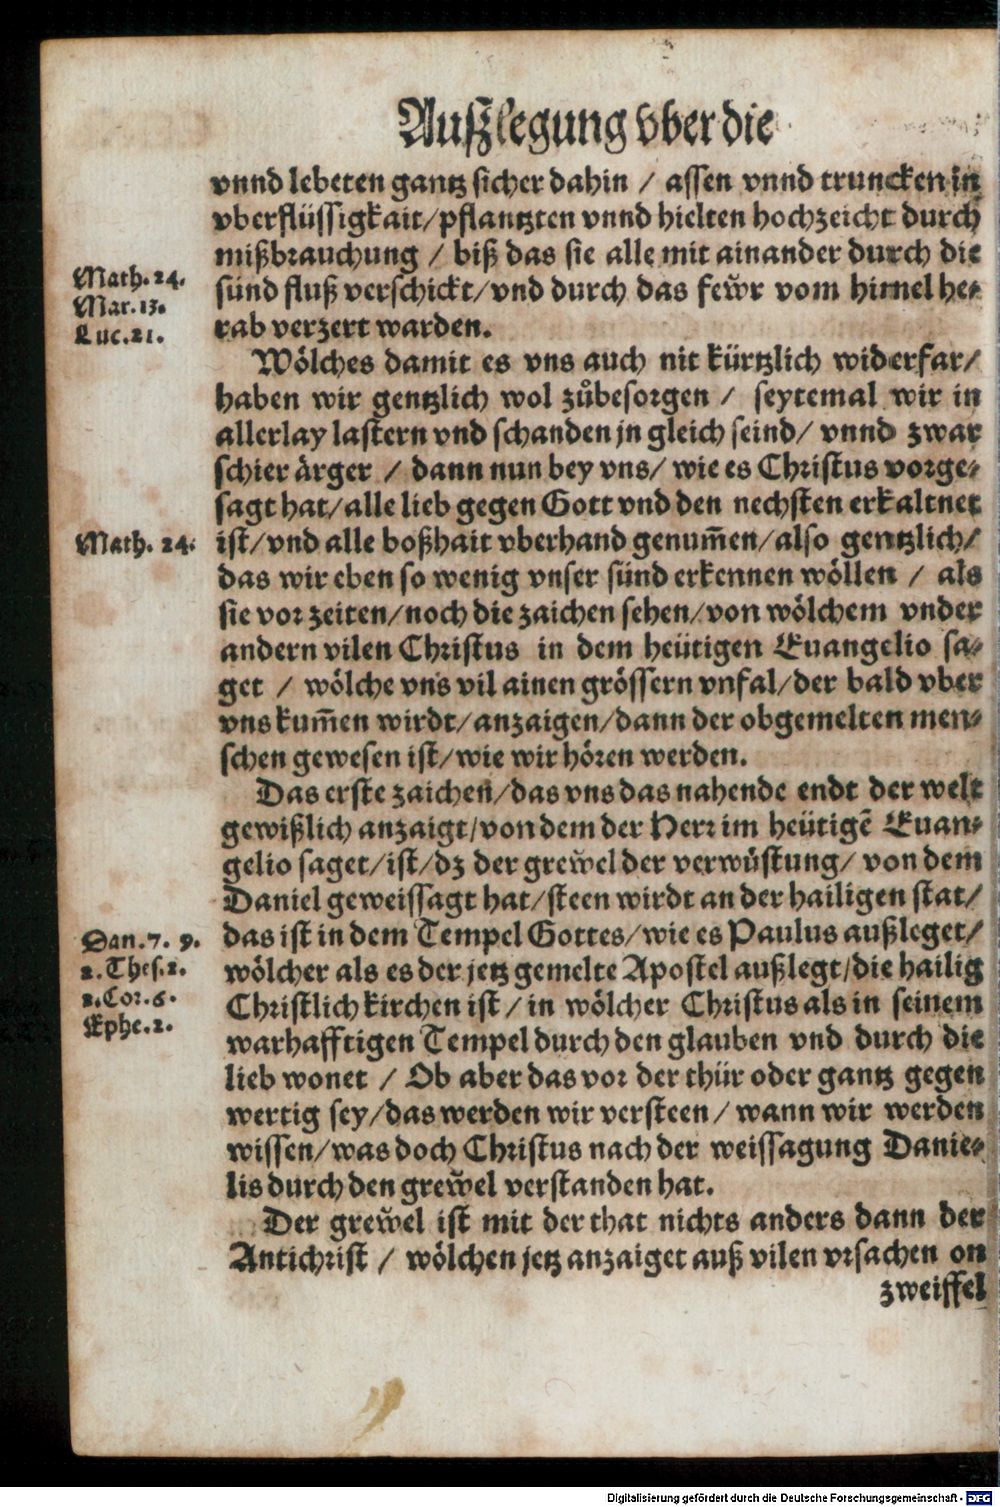 Außlegung vber die
vnnd lebeten gantz sicher dahin / assen vnnd truncken in
vberflüssigkait/pflantzten vnnd hielten hochzeicht durch
mißbrauchung / biß das sie alle mit ainander durch die
sünd fluß verschickt/vnd durch das fewͤr vom himel he⸗
rab verzert warden.
Math.24.
Mar.13.
Luc.21.
Wölches damit es vns auch nit kürtzlich widerfar/
haben wir gentzlich wol zůbesorgen / seytemal wir in
allerlay lastern vnd schanden jn gleich seind/ vnnd zwar
schier ärger / dann nun bey vns/ wie es Christus vorge⸗
sagt hat/alle lieb gegen Gott vnd den nechsten erkaltnet
ist/vnd alle boßhait vberhand genum̃en/also gentzlich/
das wir eben so wenig vnser sünd erkennen wöllen / als
sie vor zeiten/noch die zaichen sehen/von wölchem vnder
andern vilen Christus in dem heütigen Euangelio sa⸗
get / wölche vns vil ainen grössern vnfal/der bald vber
vns kum̃en wirdt/anzaigen/dann der obgemelten men⸗
schen gewesen ist/wie wir hören werden.
Math. 24.
Das erste zaichen/das vns das nahende endt der welt
gewißlich anzaigt/von dem der Herr im heütigẽ Euan⸗
gelio saget/ist/dz der grewͤel der verwüstung/ von dem
Daniel geweissagt hat/steen wirdt an der hailigen stat/
das ist in dem Tempel Gottes/wie es Paulus außleget/
wölcher als es der jetz gemelte Apostel außlegt/die hailig
Christlich kirchen ist / in wölcher Christus als in seinem
warhafftigen Tempel durch den glauben vnd durch die
lieb wonet / Ob aber das vor der thür oder gantz gegen
wertig sey/das werden wir versteen / wann wir werden
wissen/was doch Christus nach der weissagung Danie⸗
lis durch den grewͤel verstanden hat.
Dan.7. 9.
2.Thes.2.
2.Cor.6.
Ephe.2.
Der grewͤel ist mit der that nichts anders dann der
Antichrist / wölchen jetz anzaiget auß vilen vrsachen on
zweiffel
Digitalisierung gefördert durch die Deutsche Forschungsgemeinschaft - DFG